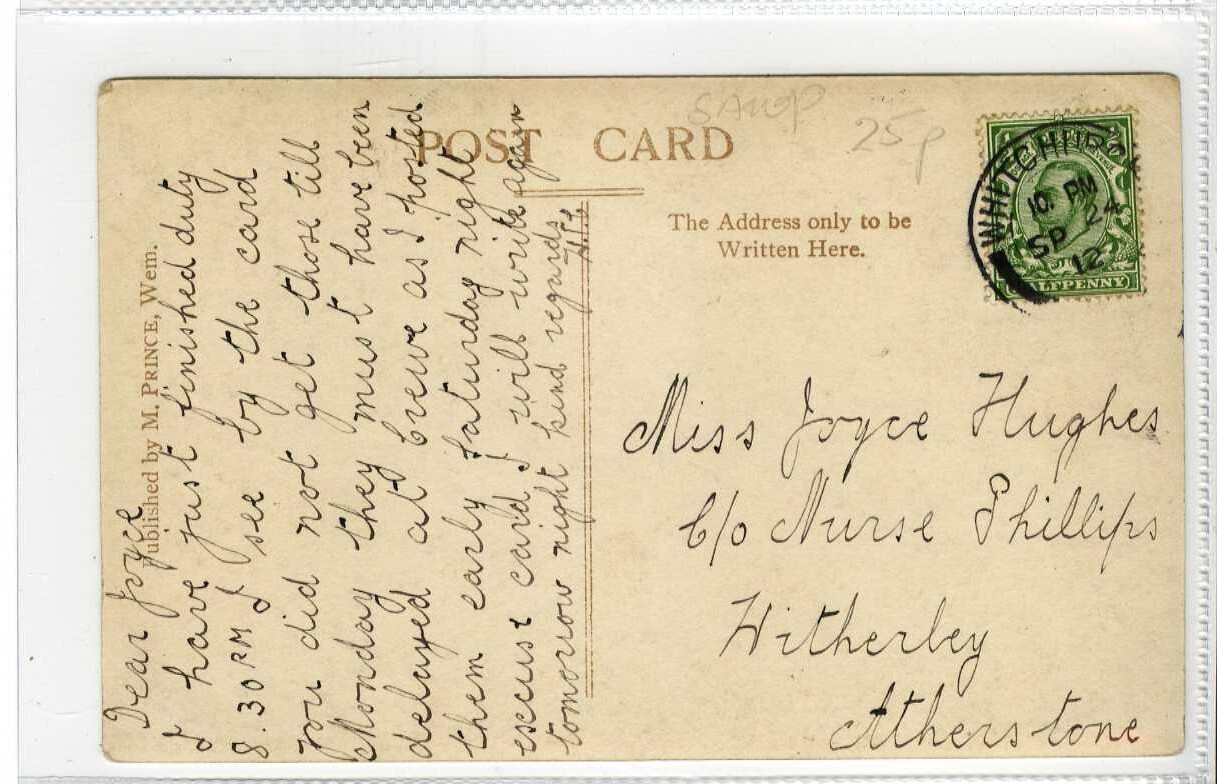 SAlop
25p
POST CARD
The Address only to be
Written Here.
WHITCHURCH
10. PM
SP 24
12
HALFPENNY
Published by M. PRINCE, Wem.
Dear Joyce
I have just finished duty
8.30 PM I see by the card
you did not get those till
Monday they must have been
delayed at Crewe as I posted
them early saturday night
excuse card I will write again
tomorrow night kind regards
Miss Joyce Hughes
C/o Nurse Phillips
Witherley
Atherstone